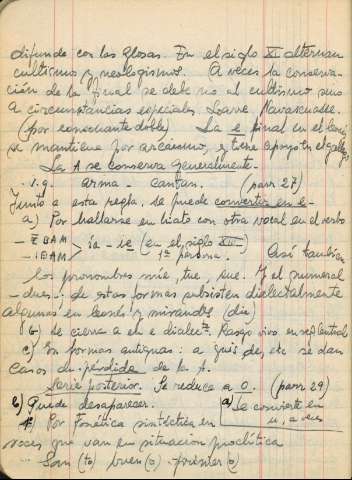 difunde con las glosas. En el siglo XI alternan
cultismos y neologismos. A veces la conserva-
ción de la final se debe no al cultismo sino
a circunstancias especiales Loarre Navascualle.
(por consonante doble) La e final en el leonés
se mantiene por arcaísmo, y tiene apoyo en el gallego
La A se conserva generalmente.
v.g. arma - cantan. (parr 27)
Junto a esta regla, se puede convertir en e-
a) Por hallarse en hiato con otra vocal en el verbo
- EBAM
- IBAM > ia - ie (en el siglo XIII-) 1ª persona. Así también
los pronombres mie, tue, sue. Y el numeral
-dues-. de estas formas subsisten dialectalmente
algunas en leonés y mirandés (die)
b) Se cierra a en e dialec.te Rasgo vivo en
c) En formas antiguas: a guis de, etc se dan
casos de pérdida de la A.
Serie posterior. Se reduce a O. (parr 29)
b) Puede desaparecer. a) Se convierte en
u, a veces
1) Por Fonética sintáctica en
voces que van en situación proclítica
San (to) buen (o) - primer (o)